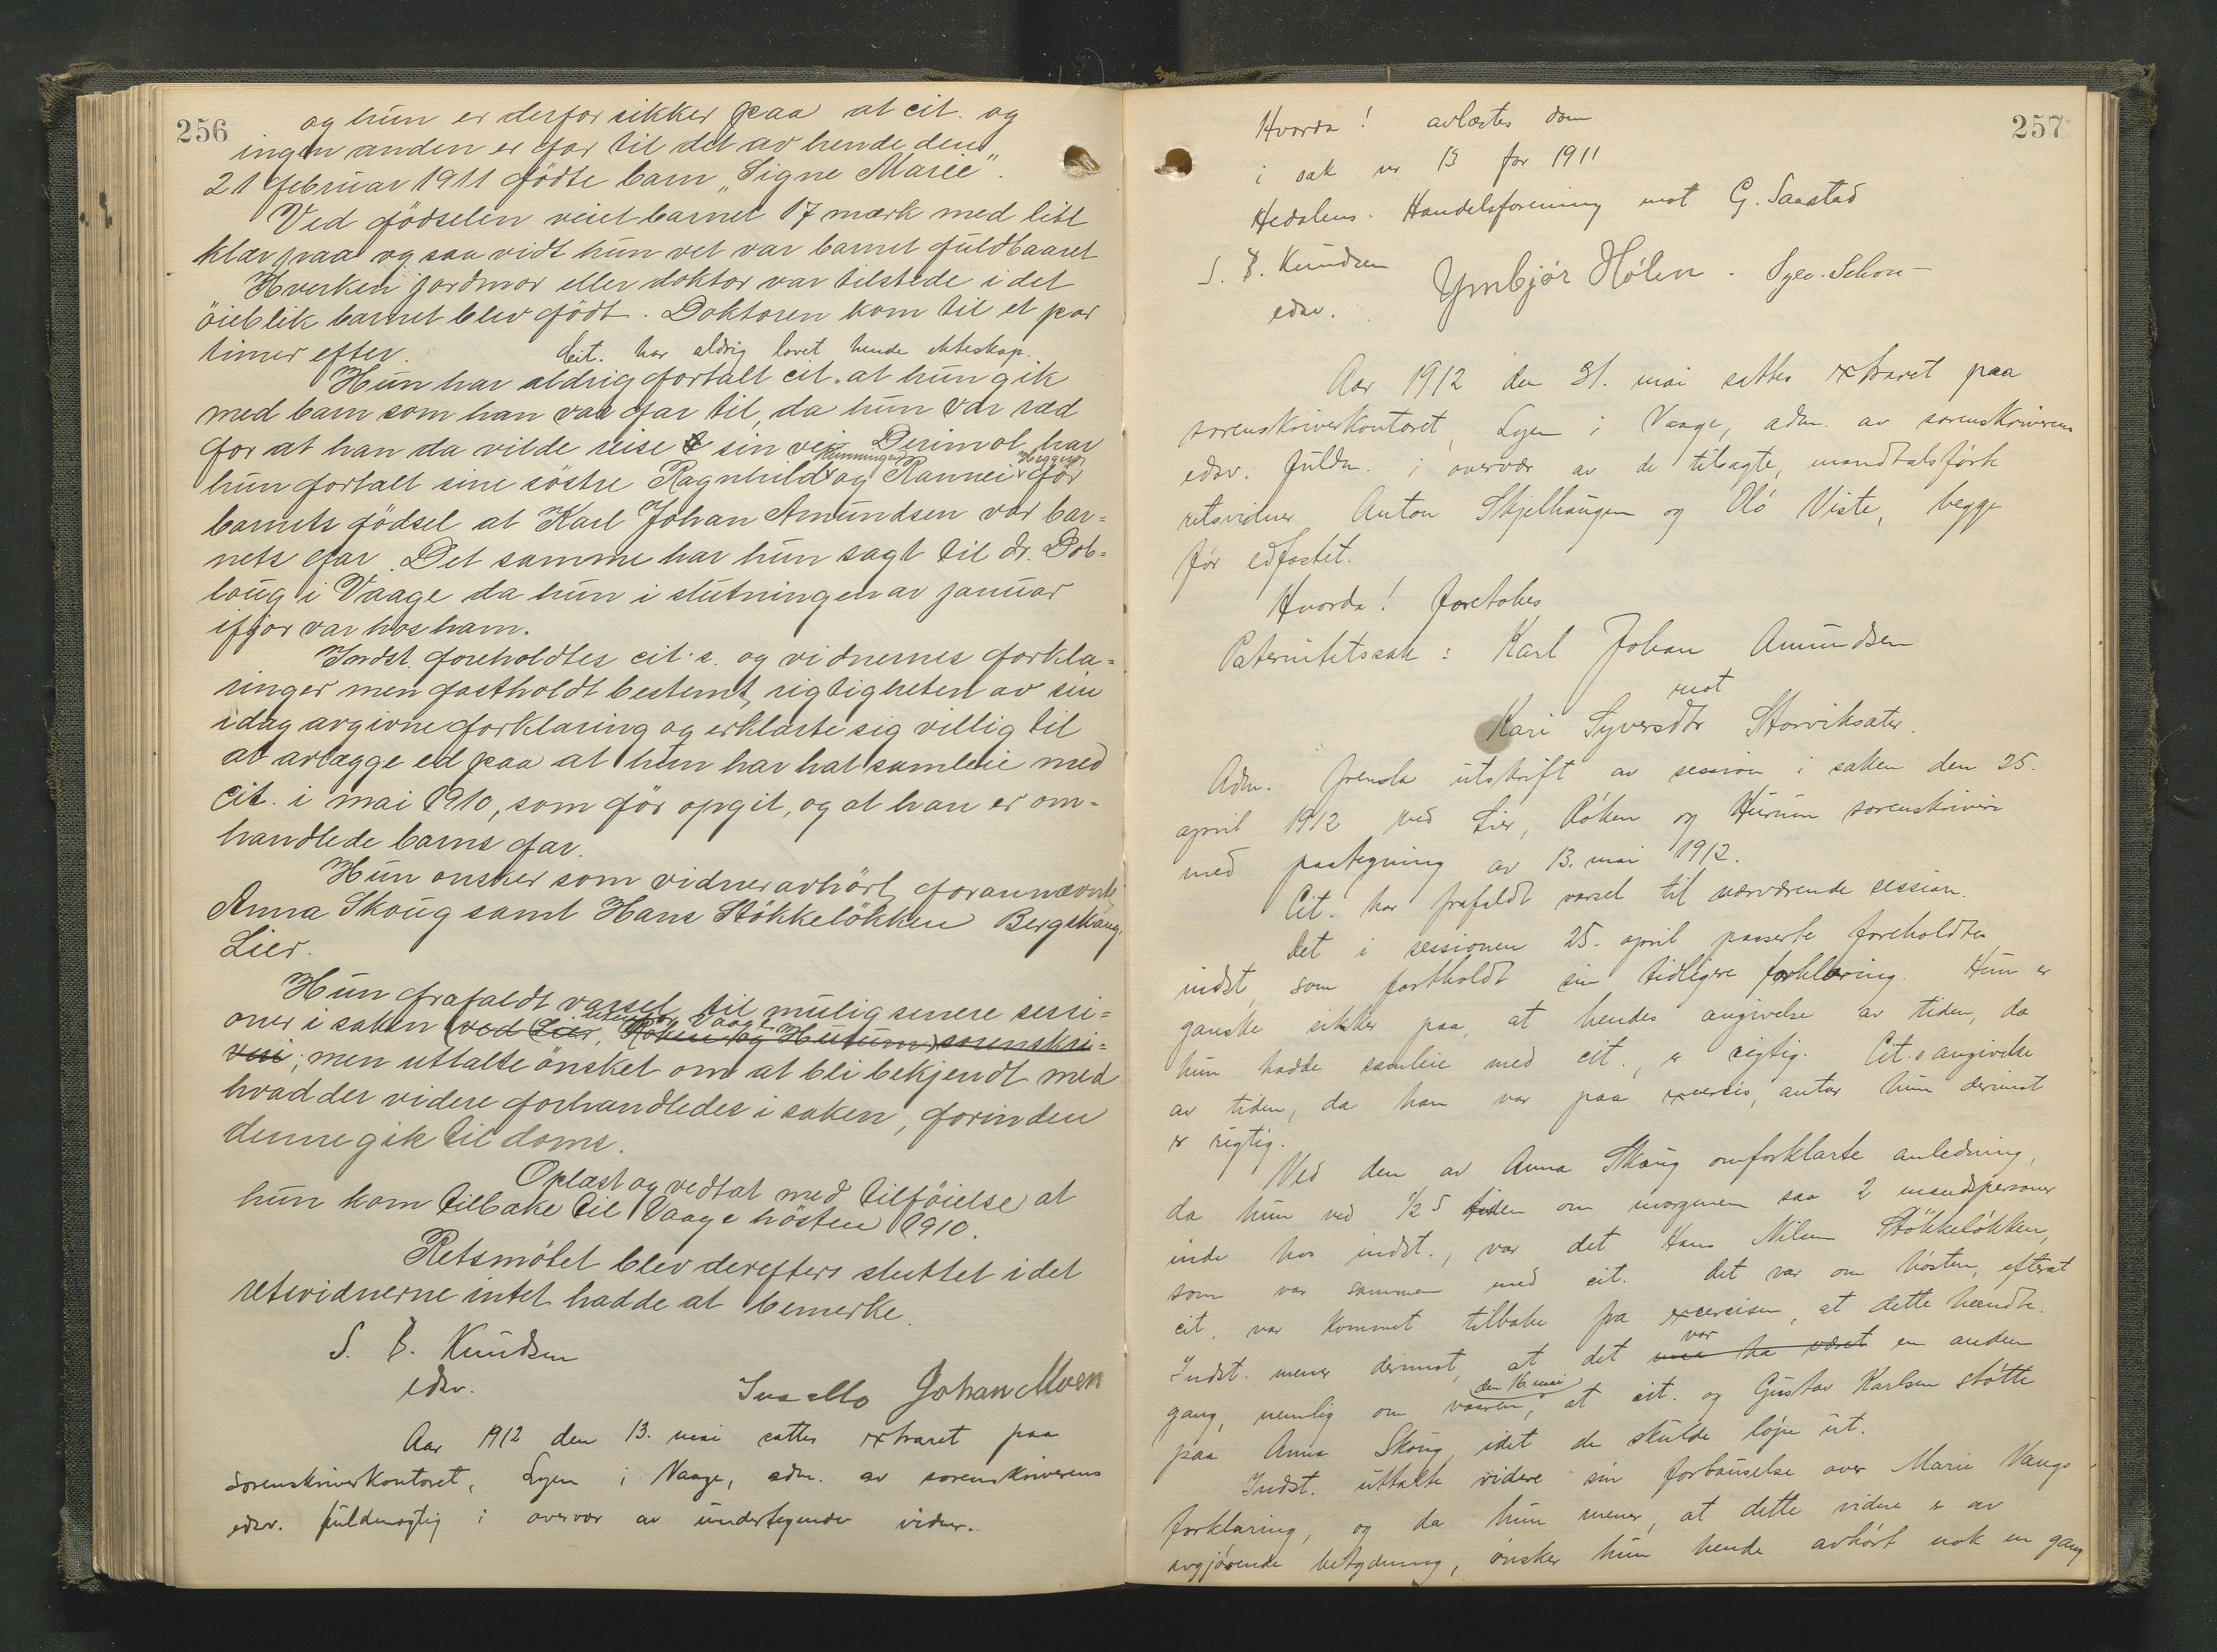 256
og hun er derfor sikker paa at cit. og
ingen anden er far til det av hende den
21 februar 1911 fødte barn „Signe Marie“.
Ved fødselen veiet barnet 17 mærk med litt
klær paa og saa vidt hun vet var barnet fuldbaaret
Hverken jordmor eller doktor var tilstede i det
øieblik barnet blev født. Doktoren kom til et par
timer efter. Cit. har aldrig lovet hende ekteskap.
Hun har aldrig fortalt cit. at hun gik
med barn som han var far til, da hun var ræd
for at han da vilde reise sin vei. Derimot har
hun fortalt sine søstre Ragnhild og Rannei før
barnets fødsel at Karl Johan Amundsen var bar=
nets far. Det samme har hun sagt til dr. Dob=
loug i Vaage da hun i slutningen av januar
ifjor var hos ham.
Indst. foreholdtes cit.s. og vidnernes forkla=
ringer men fastholdt bestemt rigtigheten av sin
idag avgivne forklaring og erklærte sig villig til
at avlægge ed paa at hun har hat samleie med
cit. i mai 1910, som før opgit, og at han er om=
handlede barns far.
Hun ønsker som vidner avhørt forannævnte
Anna Skoug samt Hans Støkkeløkken Bergskaug,
Lier.
Hun frafaldt varsel til mulig senere sessi=
oner i saken (ved Lier, Røken og Hurum) sorenskri=
veri; men uttalte ønsket om at bli bekjendt med
hvad der videre forhandledes i saken, forinden
denne gik til doms.
Oplæst og vedtat med tilføielse at
hun kom tilbake til Vaage høsten 1910.
Retsmøtet blev derefter sluttet idet
retsvidnerne intet hadde at bemerke.
S. B. Knudsen
edsv. Johan Moen
Aar 1912 den 13. mai sattes extraret paa
sorenskriverkontoret, Lyen i Vaage, adm. av sorenskriverens
edsv. fuldmægtig i overvær av undertegnede vidner.
257
Hvorda! avlæstes dom
i sak nr 13 for 1911
Hedalens Handelsforening mot G. Saastad
S. B. Knudsen Ymbjør Hølen.
edsv.
Aar 1912 den 31. mai sattes extraret paa
sorenskriverkontoret, Lyen i Vaage, adm. av sorenskriverens
edsv. fuldm. i overvær av de tilsagte, mandtalsførte
retsvidner Anton Skjelhaugen og Ole Viste, begge
før edfæstet.
Hvorda! foretokes
Paternitetssak: Karl Johan Amundsen
mot
Kari Syversdtr Storviksæter.
Adm. fremla utskrift av session i saken den 25.
april 1912 ved Lier, Røken og Hurum sorenskriveri
med paategning av 13. mai 1912.
Cit. har frafaldt varsel til nærværende session.
Det i sessionen 25. april passerte foreholdtes
indst, som fastholdt sin tidligere forklaring. Hun er
ganske sikker paa, at hendes angivelse av tiden, da
hun hadde samleie med cit., er rigtig. Cit.s angivelse
av tiden, da han var paa exercis, antar hun derimot
er rigtig.
Ved den av Anna Skoug omforklarte anledning,
da hun ved ½ 5 tiden om morgenen saa 2 mandspersoner
inde hos indst., var det Hans Nilsen Støkkeløkken,
som var sammen med cit. Det var om høsten, efterat
cit. var kommet tilbake fra exercisen, at dette hændte.
Indst. mener derimot, at det maa ha været var en anden
gang, nemlig om vaaren, den 16. mai at cit. og Gustav Karlsen støtte
paa Anna Skoug, idet de skulde løpe ut.
Indst. uttalte videre sin forbauselse over Marie Vangs
forklaring, og da hun mener, at dette vidne er av
avgjørende betydning, ønsker hun hende avhørt nok en gang